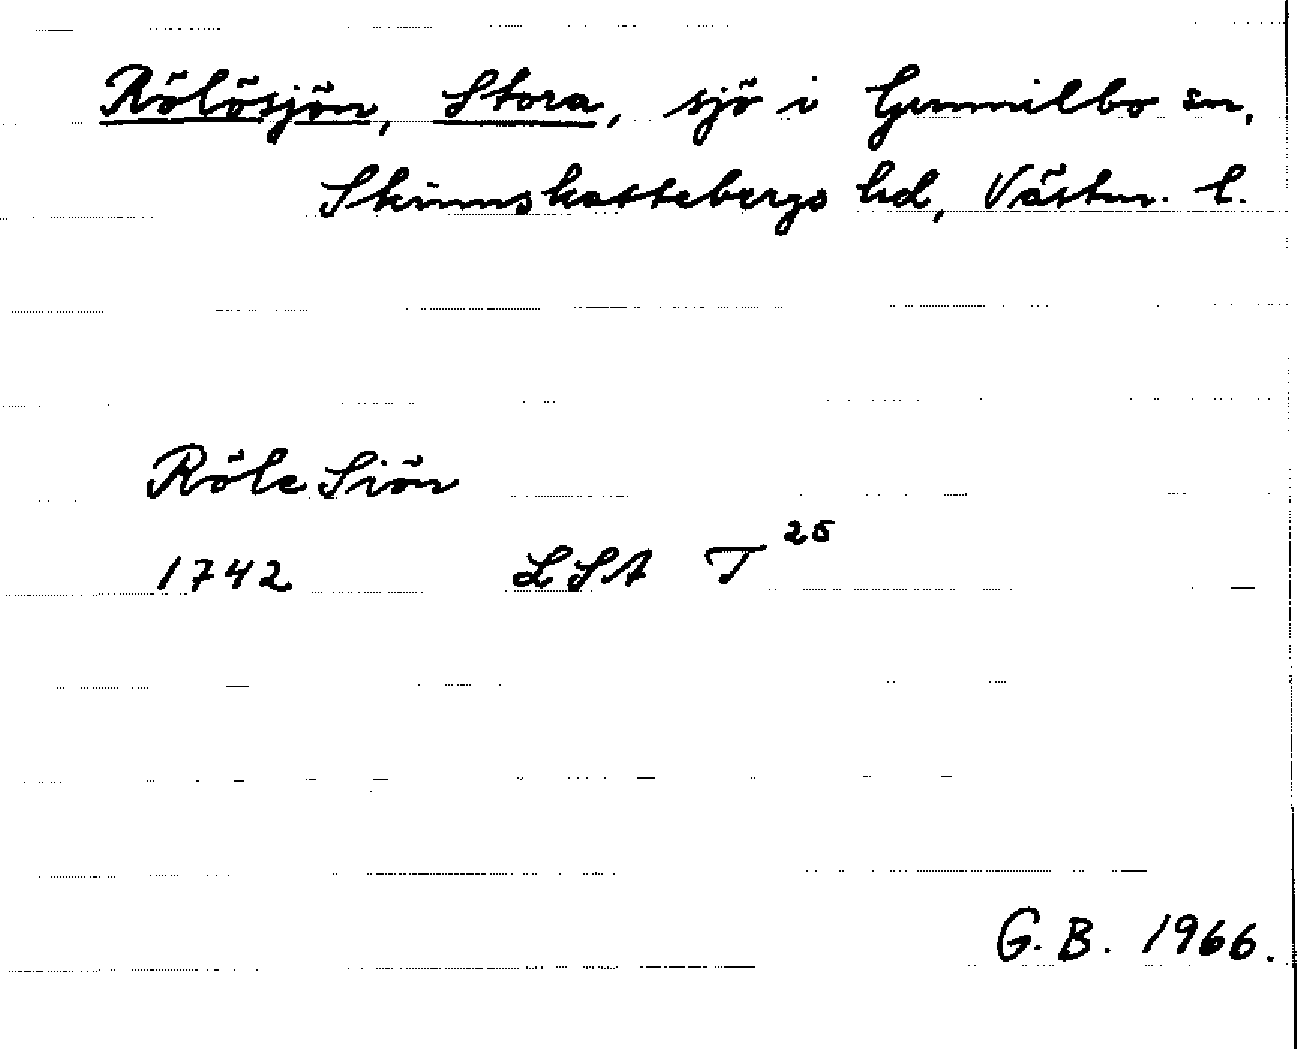 Rölösjön, Stora, sjö i Gunnilbo sn,
Skinnskattebergs hd, Västm. l.
Röle Siön
1742 LSA T 25
G.B. 1966.